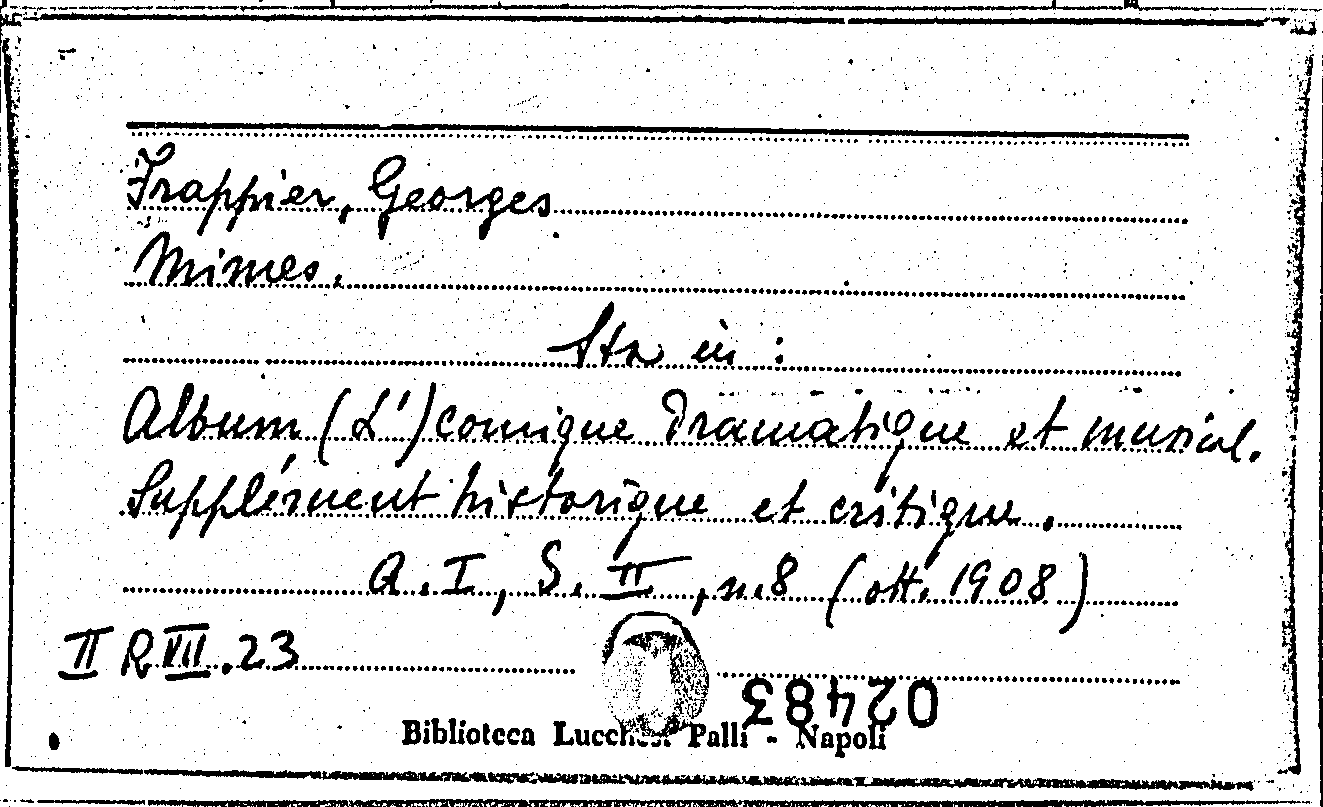 Frappier, Georges
Mimes.
Sta in :
Album (L') comique dramatique et musical.
Supplément historique et critique.
A. I, S. II, n. 8 (ott. 1908)
II R VII. 23
02483
Biblioteca Lucchesi Palli - Napoli